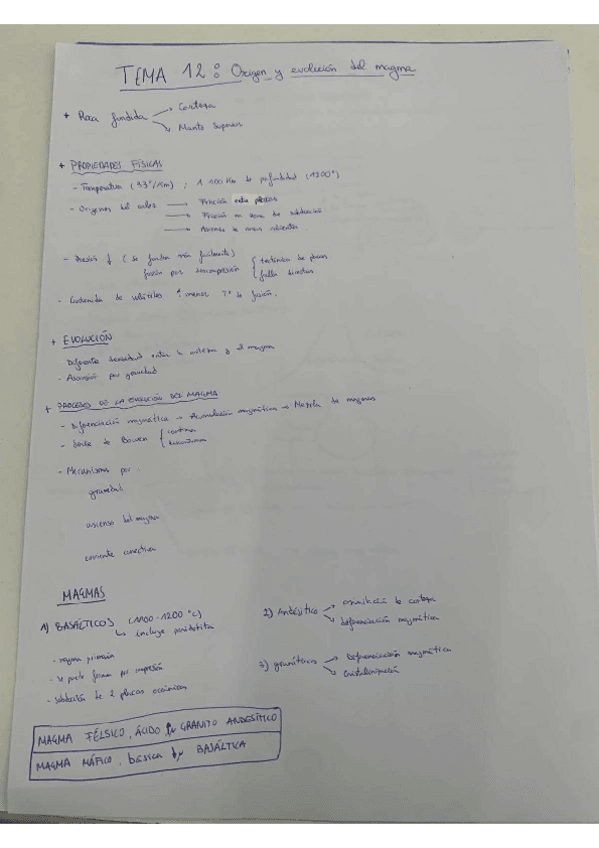 TEMA 12: Origen y evolución del magma
+ Roca fundida → Corteza
→ Manto Superior
+ PROPIEDADES FÍSICAS
- Temperatura (33°/Km) ; ↑ 100 Km de profundidad (1200°)
- Orígenes del calor → Fricción entre placas
→ Fricción en zona de subducción
→ Ascenso de rocas calientes
- Presión ↓ (se funden más fácilmente)
fusión por descompresión { tectónica de placas
{ falla directas
- Contenido de volátiles ↑ menor Tª de fusión.
+ EVOLUCIÓN
- Diferente densidad entre la corteza y el magma
- Ascensión por gravedad
+ PROCESOS DE LA EVOLUCIÓN DEL MAGMA
- Diferenciación magmática → Acumulación magmática → Mezcla de magmas
- Serie de Bowen { continua
{ discontinua
- Mecanismos por:
gravedad
ascenso del magma
corriente convectiva
MAGMAS
1) BASÁLTICOS (1100-1200 °C)
↳ incluye peridotita
- magma primario
- Se puede formar por
- Subducción de 2 placas oceánicas
2) Andesítico → asimilación de corteza
→ diferenciación magmática
3) graníticos → Diferenciación magmática
→ Cristalización
MAGMA FÉLSICO, ÁCIDO GRANITO ANDESÍTICO
MAGMA MÁFICO, básica BASÁLTICA